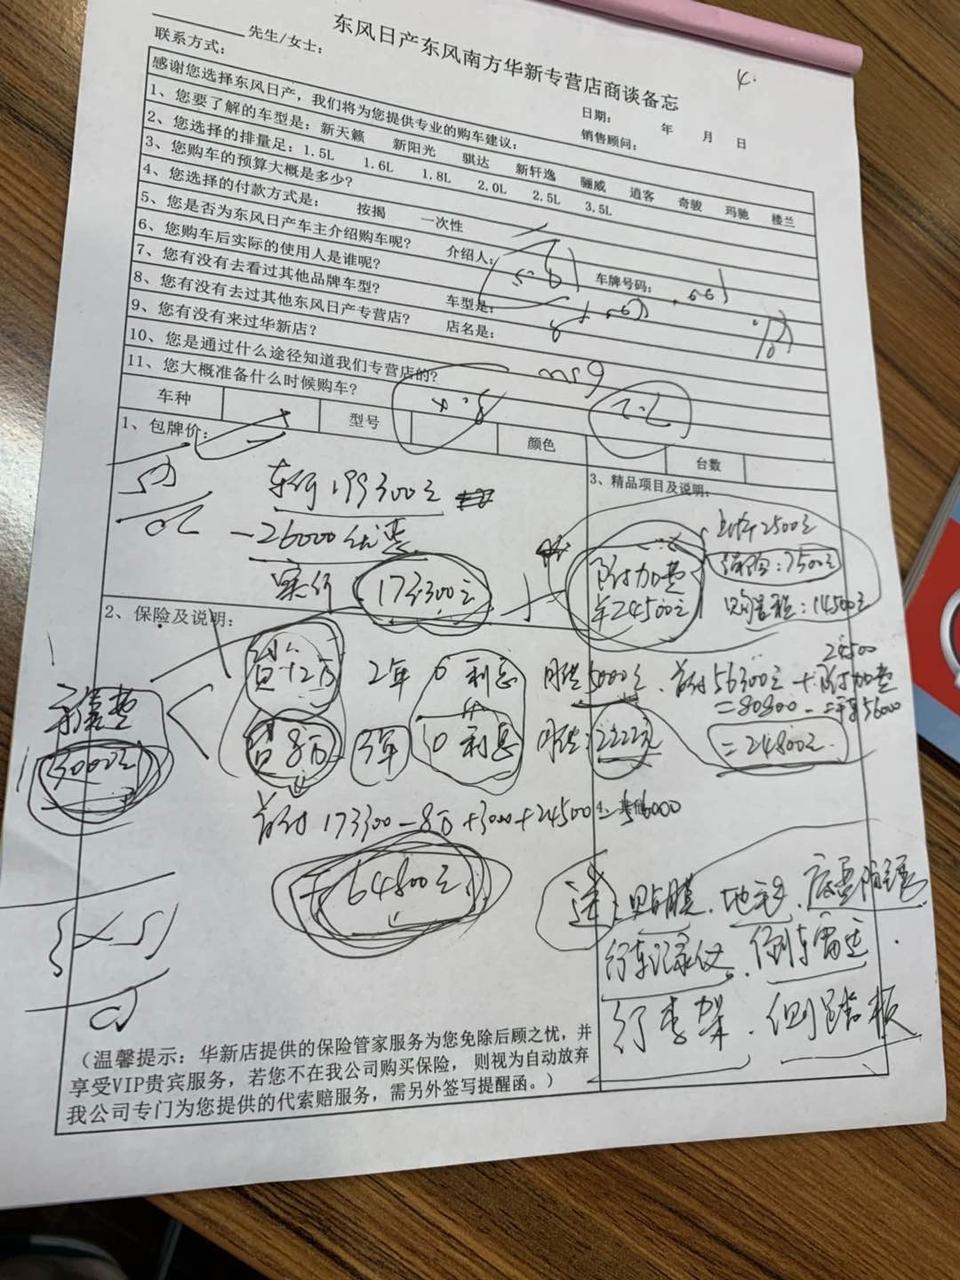 东风日产东风南方华新专营店商谈备忘
4.
先生/女士:
联系方式:
日期: 年 月 日
销售顾问:
感谢您选择东风日产,我们将为您提供专业的购车建议:
1、您要了解的车型是: 新天籁 新阳光 骐达 新轩逸 骊威 逍客 奇骏 玛驰 楼兰
2、您选择的排量足: 1.5L 1.6L 1.8L 2.0L 2.5L 3.5L
3、您购车的预算大概是多少?
4、您选择的付款方式是: 按揭 一次性
5、您是否为东风日产车主介绍购车呢? 介绍人: 车牌号码:
6、您购车后实际的使用人是谁呢?
7、您有没有去看过其他品牌车型? 车型是:
8、您有没有去过其他东风日产专营店? 店名是:
9、您有没有来过华新店?
10、您是通过什么途径知道我们专营店的?
11、您大概准备什么时候购车?
车种 型号 颜色 台数
1、包牌价:
车价199300元
-26000优惠
实价 173300元
3、精品项目及说明:
附加费
羊24500元
上牌2500元
保险:7500元
购置税:14500元
2、保险及说明:
贷12万 2年 0利息 月供5000元.首付56300元+附加费
24500
=80800-二手车56000
=24800元
贷8万 3年 0利息 月供:2222元
3000元
首付173300-8万+3000+24500
4、其他
-56000
=64800元
送:贴膜.地毯.底盘防锈
行车记录仪.倒车雷达.
行李架.侧踏板
(温馨提示: 华新店提供的保险管家服务为您免除后顾之忧,并
享受VIP贵宾服务,若您不在我公司购买保险, 则视为自动放弃
我公司专门为您提供的代索赔服务,需另外签写提醒函。)